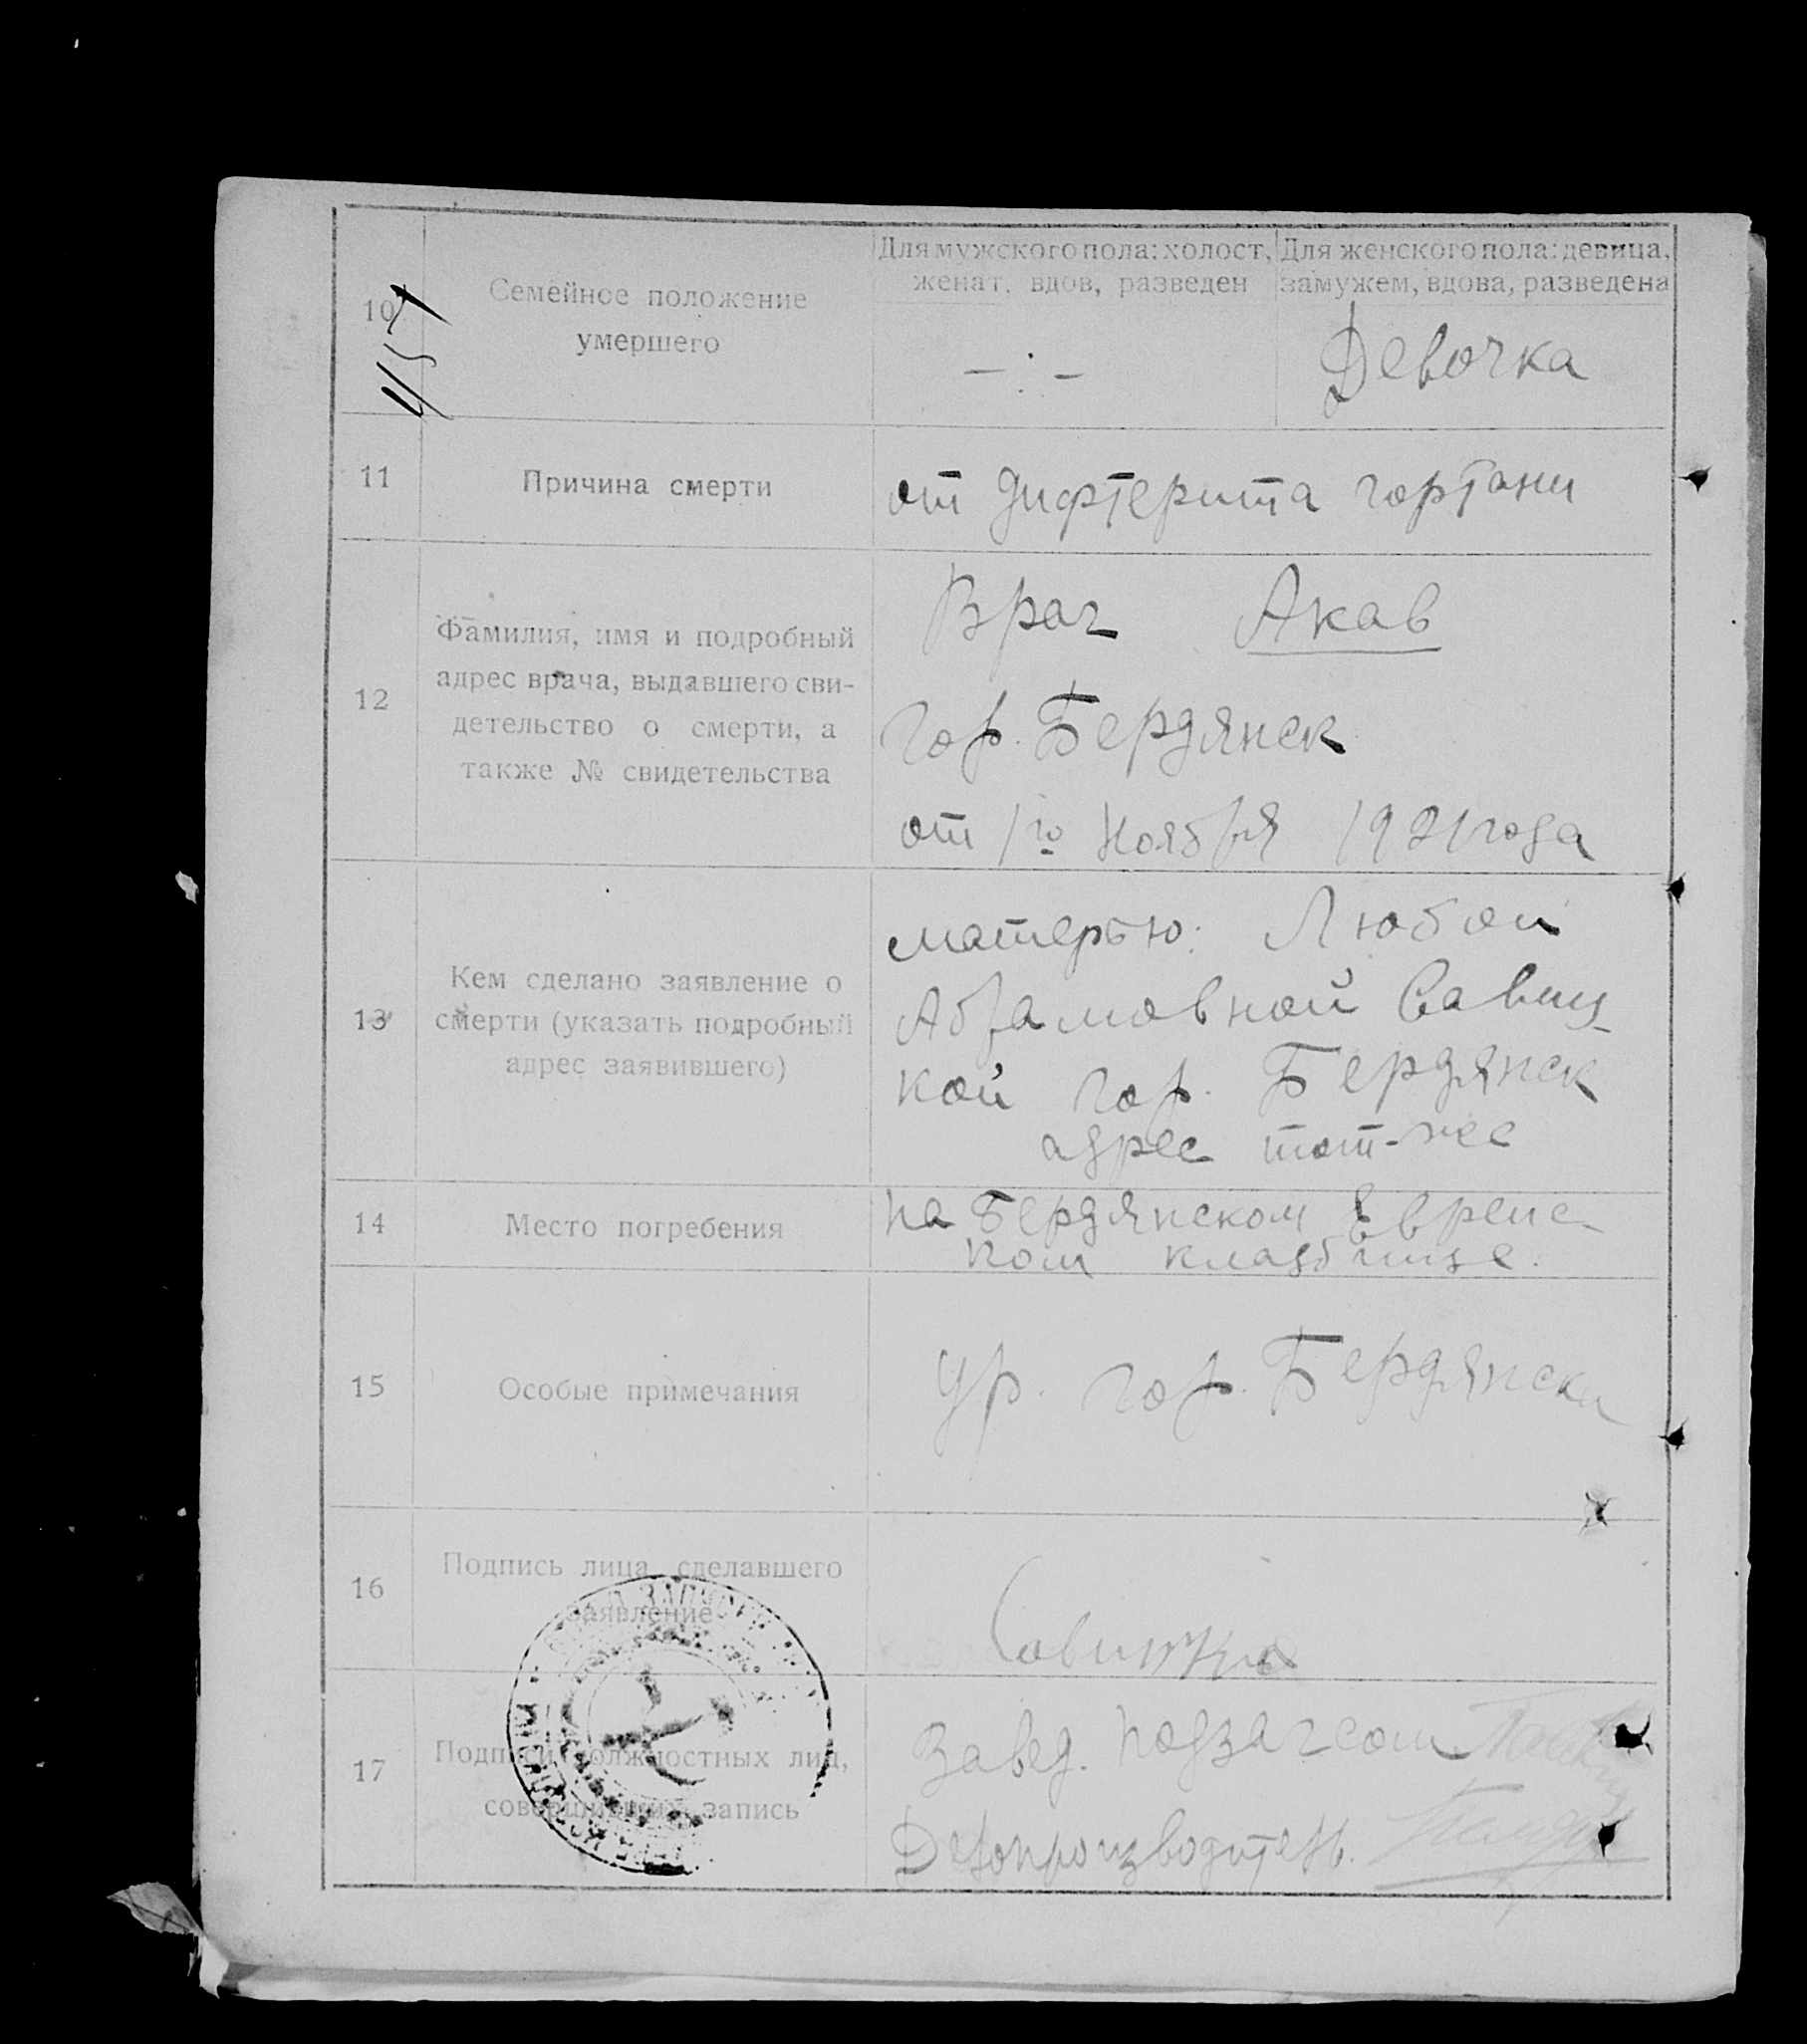 10
457
Семейное положение
умершего
Для мужского пола: холост,
женат, вдов, разведен
Для женского пола: девица,
замужем, вдова, разведена
— : —
Девочка
11
Причина смерти
от дифтерита гортани
12
Фамилия, имя и подробный
адрес врача, выдавшего сви-
детельство о смерти, а
также № свидетельства
Врач Акав
гор. Бердянск
от 1го Ноября 1921 года
13
Кем сделано заявление о
смерти (указать подробный
адрес заявившего)
матерью: Любой
Абрамовной Савиц-
кой гор. Бердянск
адрес тот-же
14
Место погребения
на Бердянском Еврейс-
ком кладбище.
15
Особые примечания
Ур. гор. Бердянска
16
Подпись лица, сделавшего
заявление
17
Подписи должностных лиц,
совершивших запись
Завед. подзагсом
Делопроизводитель.